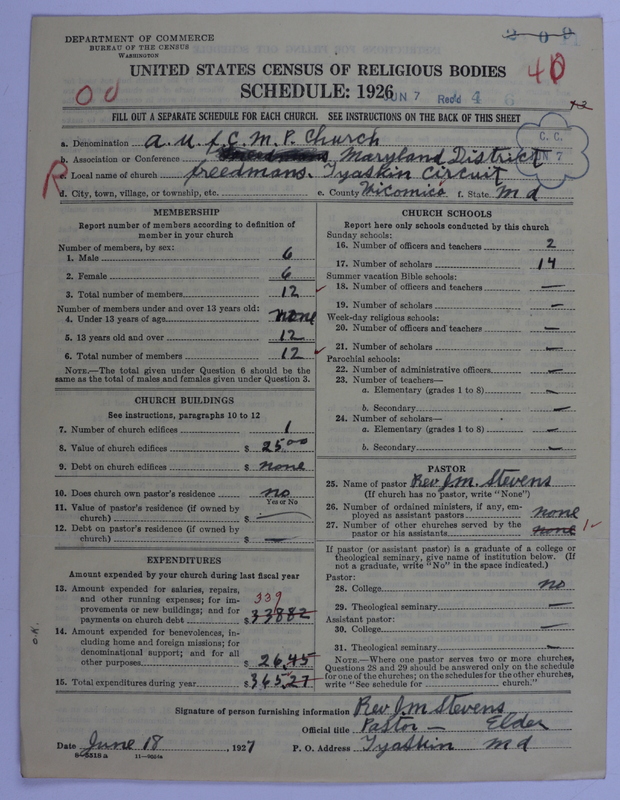 DEPARTMENT OF COMMERCE
BUREAU OF THE CENSUS
WASHINGTON
UNITED STATES CENSUS OF RELIGIOUS BODIES
SCHEDULE: 1926
JUN 7 Rec'd 4 6
40
FILL OUT A SEPARATE SCHEDULE FOR EACH CHURCH. SEE INSTRUCTIONS ON THE BACK OF THIS SHEET
C. C.
JUN 7
a. Denomination A. U. f. C. M. P. Church
b. Association or Conference Maryland District
R
c. Local name of church freedmans. Tyaskin Circuit
d. City, town, village, or township, etc. e. County Wicomico f. State Md
MEMBERSHIP
Report number of members according to definition of member in your church
Number of members, by sex:
1. Male 6
2. Female 6
3. Total number of members 12
Number of members under and over 13 years old:
4. Under 13 years of age none
5. 13 years old and over 12
6. Total number of members 12
NOTE.—The total given under Question 6 should be the
same as the total of males and females given under Question 3.
CHURCH BUILDINGS
See instructions, paragraphs 10 to 12
7. Number of church edifices 1
8. Value of church edifices $ 25 00
9. Debt on church edifices $ none
10. Does church own pastor's residence no
Yes or No
11. Value of pastor's residence (if owned by
church) $ —
12. Debt on pastor's residence (if owned by
church) $ —
EXPENDITURES
Amount expended by your church during last fiscal year
13. Amount expended for salaries, repairs,
and other running expenses; for im- 339
provements or new buildings; and for
payments on church debt $ 338 82
14. Amount expended for benevolences, in-
cluding home and foreign missions; for
denominational support; and for all
other purposes $ 26.45
15. Total expenditures during year $ 365.27
O.K.
CHURCH SCHOOLS
Report here only schools conducted by this church
Sunday schools:
16. Number of officers and teachers 2
17. Number of scholars 14
Summer vacation Bible schools:
18. Number of officers and teachers —
19. Number of scholars —
Week-day religious schools:
20. Number of officers and teachers —
21. Number of scholars —
Parochial schools:
22. Number of administrative officers —
23. Number of teachers—
a. Elementary (grades 1 to 8) —
b. Secondary —
24. Number of scholars—
a. Elementary (grades 1 to 8) —
b. Secondary —
PASTOR
25. Name of pastor Rev J.M. Stevens
(If church has no pastor, write "None")
26. Number of ordained ministers, if any, em-
ployed as assistant pastors none
27. Number of other churches served by the
pastor or his assistants none 1
If pastor (or assistant pastor) is a graduate of a college or
theological seminary, give name of institution below. (If
not a graduate, write "No" in the space indicated.)
Pastor:
28. College no
29. Theological seminary —
Assistant pastor:
30. College —
31. Theological seminary —
NOTE.—Where one pastor serves two or more churches,
Questions 28 and 29 should be answered only on the schedule
for one of the churches; on the schedules for the other churches,
write "See schedule for church."
Signature of person furnishing information Rev J.M Stevens
Official title Pastor — Elder
Date June 18, 1927 P. O. Address Tyaskin Md
8—5518 a